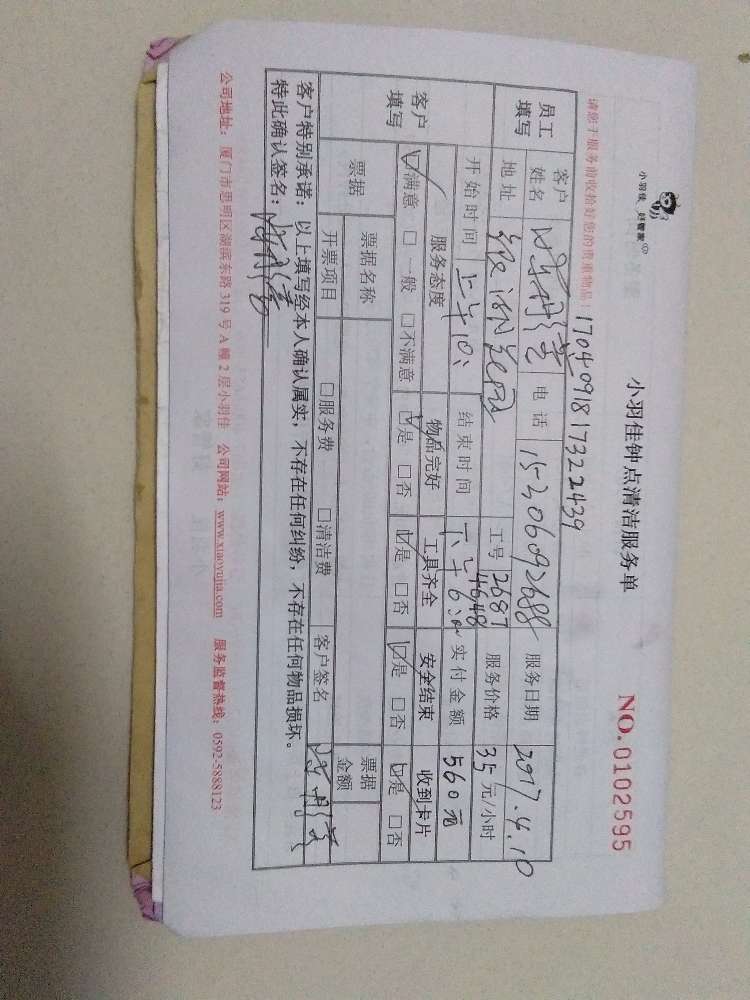 小羽佳 好管家
小羽佳钟点清洁服务单
NO.0102595
请您于服务前收拾好您的贵重物品! 1704091817322439
员工填写 客户姓名 电话 15306092688 服务日期 2017.4.10
地址 工号 2687 4648 服务价格 35元/小时
开始时间 上午10: 结束时间 下午6:00 实付金额 560元
客户填写 服务态度 物品完好 工具齐全 安全结束 收到卡片
☑满意 □一般 □不满意 ☑是 □否 ☑是 □否 ☑是 □否 ☑是 □否
票据 票据名称 票据金额
开票项目 □服务费 □清洁费 客户签名
客户特别承诺:以上填写经本人确认属实,不存在任何纠纷,不存在任何物品损坏。
特此确认签名:
公司地址:厦门市思明区湖滨东路319号A幢2层小羽佳 公司网站:www.xiaoyujia.com 服务监督热线:0592-5888123